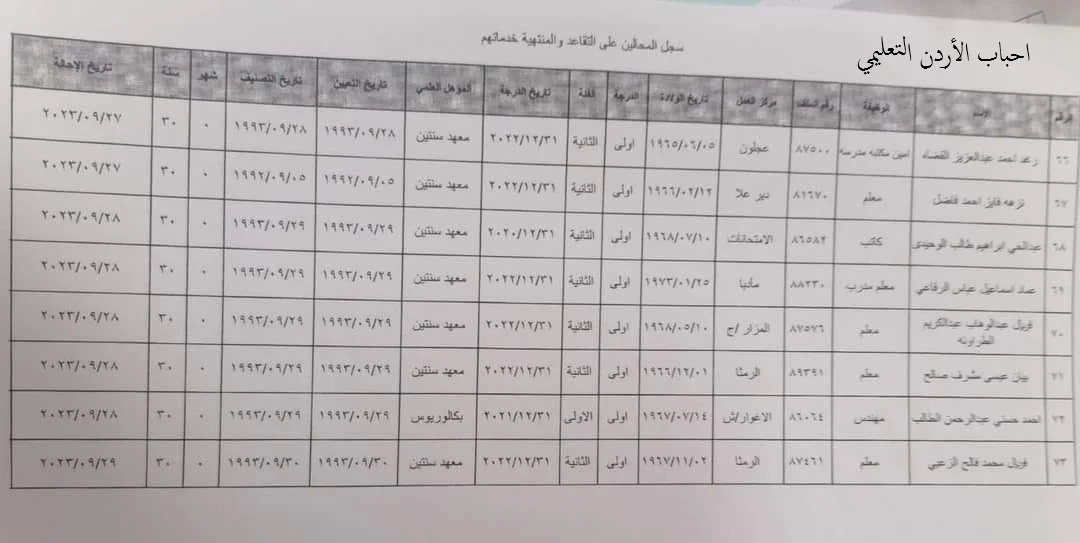 احباب الأردن التعليمي
سجل المحالين على التقاعد والمنتهية خدماتهم
الرقم الاسم الوظيفة رقم الملف مركز العمل تاريخ الولادة الدرجة الفئة تاريخ الدرجة المؤهل العلمي تاريخ التعيين تاريخ التصنيف شهر سنة تاريخ الإحالة
٦٦ رغد احمد عبدالعزيز القضاه امين مكتبه مدرسه ٨٧٥٠٠ عجلون ١٩٦٥/٠٦/٠٥ اولى الثانية ٢٠٢٢/١٢/٣١ معهد سنتين ١٩٩٣/٠٩/٢٨ ١٩٩٣/٠٩/٢٨ ٠ ٣٠ ٢٠٢٣/٠٩/٢٧
٦٧ نزهه فايز احمد فاضل معلم ٨١٦٧٠ دير علا ١٩٦٦/٠٢/١٢ اولى الثانية ٢٠٢٢/١٢/٣١ معهد سنتين ١٩٩٢/٠٩/٠٥ ١٩٩٢/٠٩/٠٥ ٠ ٣٠ ٢٠٢٣/٠٩/٢٧
٦٨ عبدالحي ابراهيم طالب الوحيدى كاتب ٨٦٥٨٢ الامتحانات ١٩٦٨/٠٧/١٠ اولى الثانية ٢٠٢٠/١٢/٣١ معهد سنتين ١٩٩٣/٠٩/٢٩ ١٩٩٣/٠٩/٢٩ ٠ ٣٠ ٢٠٢٣/٠٩/٢٨
٦٩ عماد اسماعيل عباس الرفاعي معلم مدرب ٨٨٢٣٠ مأدبا ١٩٧٣/٠١/٢٥ اولى الثانية ٢٠٢٢/١٢/٣١ معهد سنتين ١٩٩٣/٠٩/٢٩ ١٩٩٣/٠٩/٢٩ ٠ ٣٠ ٢٠٢٣/٠٩/٢٨
٧٠ فريال عبدالوهاب عبدالكريم معلم ٨٧٥٧٦ المزار /ج ١٩٦٨/٠٥/١٠ اولى الثانية ٢٠٢٢/١٢/٣١ معهد سنتين ١٩٩٣/٠٩/٢٩ ١٩٩٣/٠٩/٢٩ ٠ ٣٠ ٢٠٢٣/٠٩/٢٨
الطراونه
٧١ بيان عيسى مشرف صالح معلم ٨٩٣٩١ الرمثا ١٩٦٦/١٢/٠١ اولى الثانية ٢٠٢٢/١٢/٣١ معهد سنتين ١٩٩٣/٠٩/٢٩ ١٩٩٣/٠٩/٢٩ ٠ ٣٠ ٢٠٢٣/٠٩/٢٨
٧٢ احمد حسني عبدالرحمن الطالب مهندس ٨٦٠٦٤ الاغوار/ش ١٩٦٧/٠٧/١٤ اولى الاولى ٢٠٢١/١٢/٣١ بكالوريوس ١٩٩٣/٠٩/٢٩ ١٩٩٣/٠٩/٢٩ ٠ ٣٠ ٢٠٢٣/٠٩/٢٨
٧٣ فريال محمد فالح الزعبي معلم ٨٧٤٦١ الرمثا ١٩٦٧/١١/٠٢ اولى الثانية ٢٠٢٢/١٢/٣١ معهد سنتين ١٩٩٣/٠٩/٣٠ ١٩٩٣/٠٩/٣٠ ٠ ٣٠ ٢٠٢٣/٠٩/٢٩